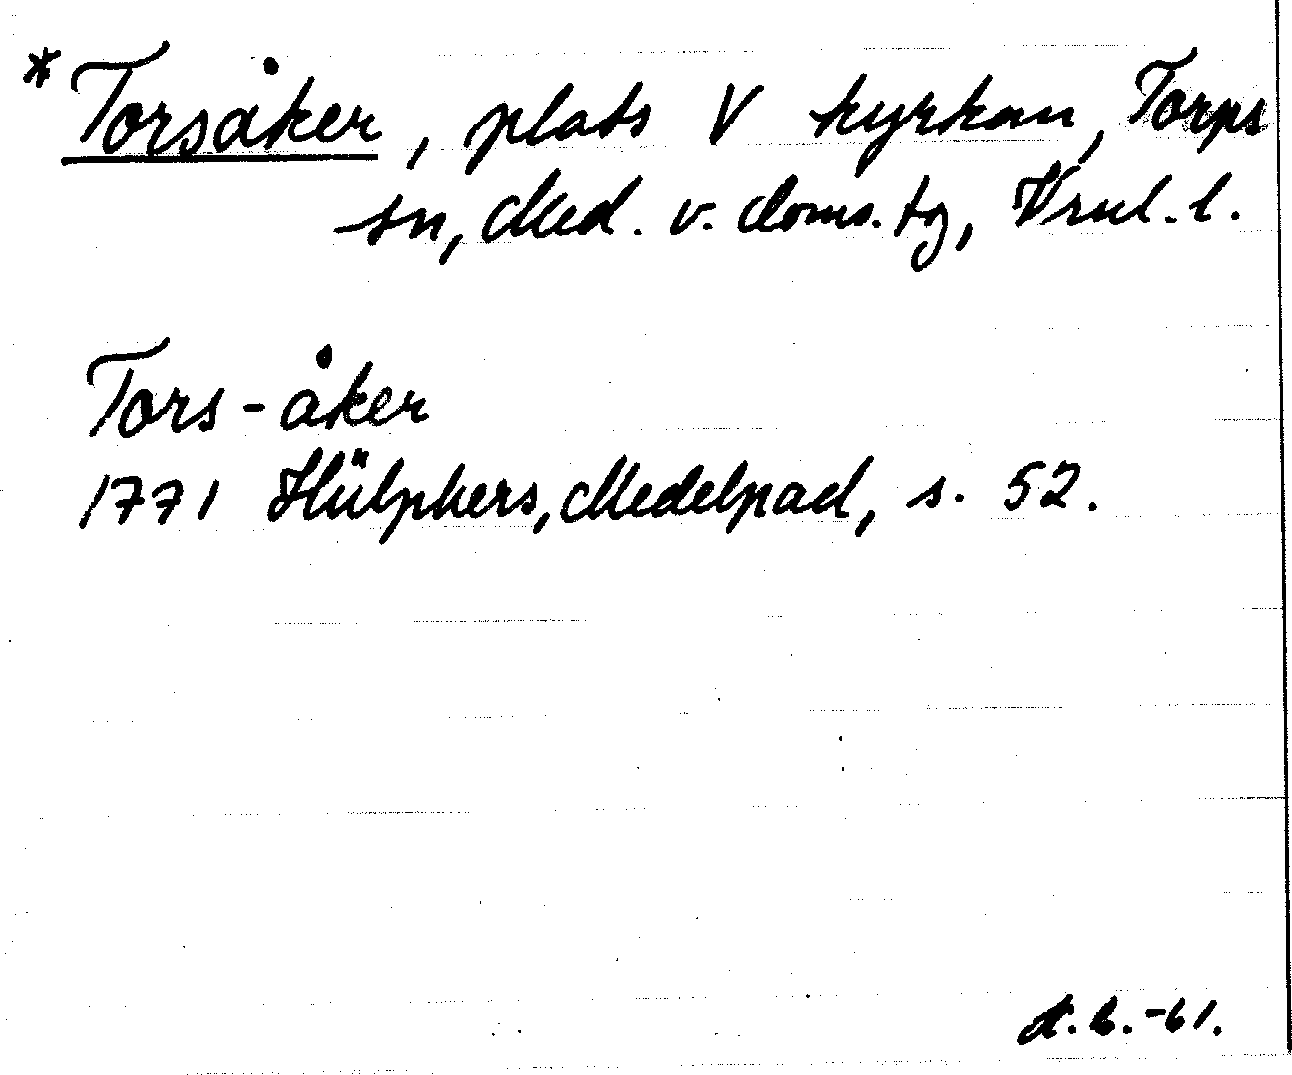 * Torsåker, plats V kyrkan, Torps
sn, Med. v. doms. tg, Vrnl. l.
Tors-åker
1771 Hülphers, Medelpad, s. 52.